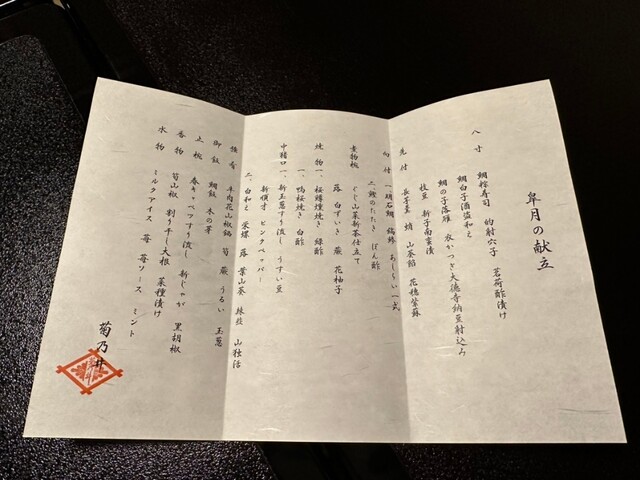 皐月の献立
八寸 鯛粽寿司 的射穴子 茗荷酢漬け
鯛白子酒盗和え
鯛の子落雁 衣かつぎ大徳寺納豆射込み
枝豆 新子南蛮漬
先付 長芋羹 山葵餡 花穂紫蘇
向付 一、明石鯛 あしらい一式
二、鰹のたたき ぽん酢
煮物椀 ぐじ山菜新茶仕立て
蕗 白ずいき 蕨 花柚子
焼物 一、桜鱒燻焼き 緑酢
一、鴨桜焼き 白酢
中猪口 一、新玉葱すり流し うすい豆
新順才 ピンクペッパー
二、白和え 栄螺 蕗 葉山葵 辣韮 山独活
強肴 牛肉花山椒鍋 筍 蕨 うるい 玉葱
御飯 鯛飯 木の芽
止椀 春キャベツすり流し 新じゃが 黒胡椒
香物 筍山椒 割り干し大根 菜種漬け
水物 ミルクアイス 苺 苺ソース ミント
菊乃井